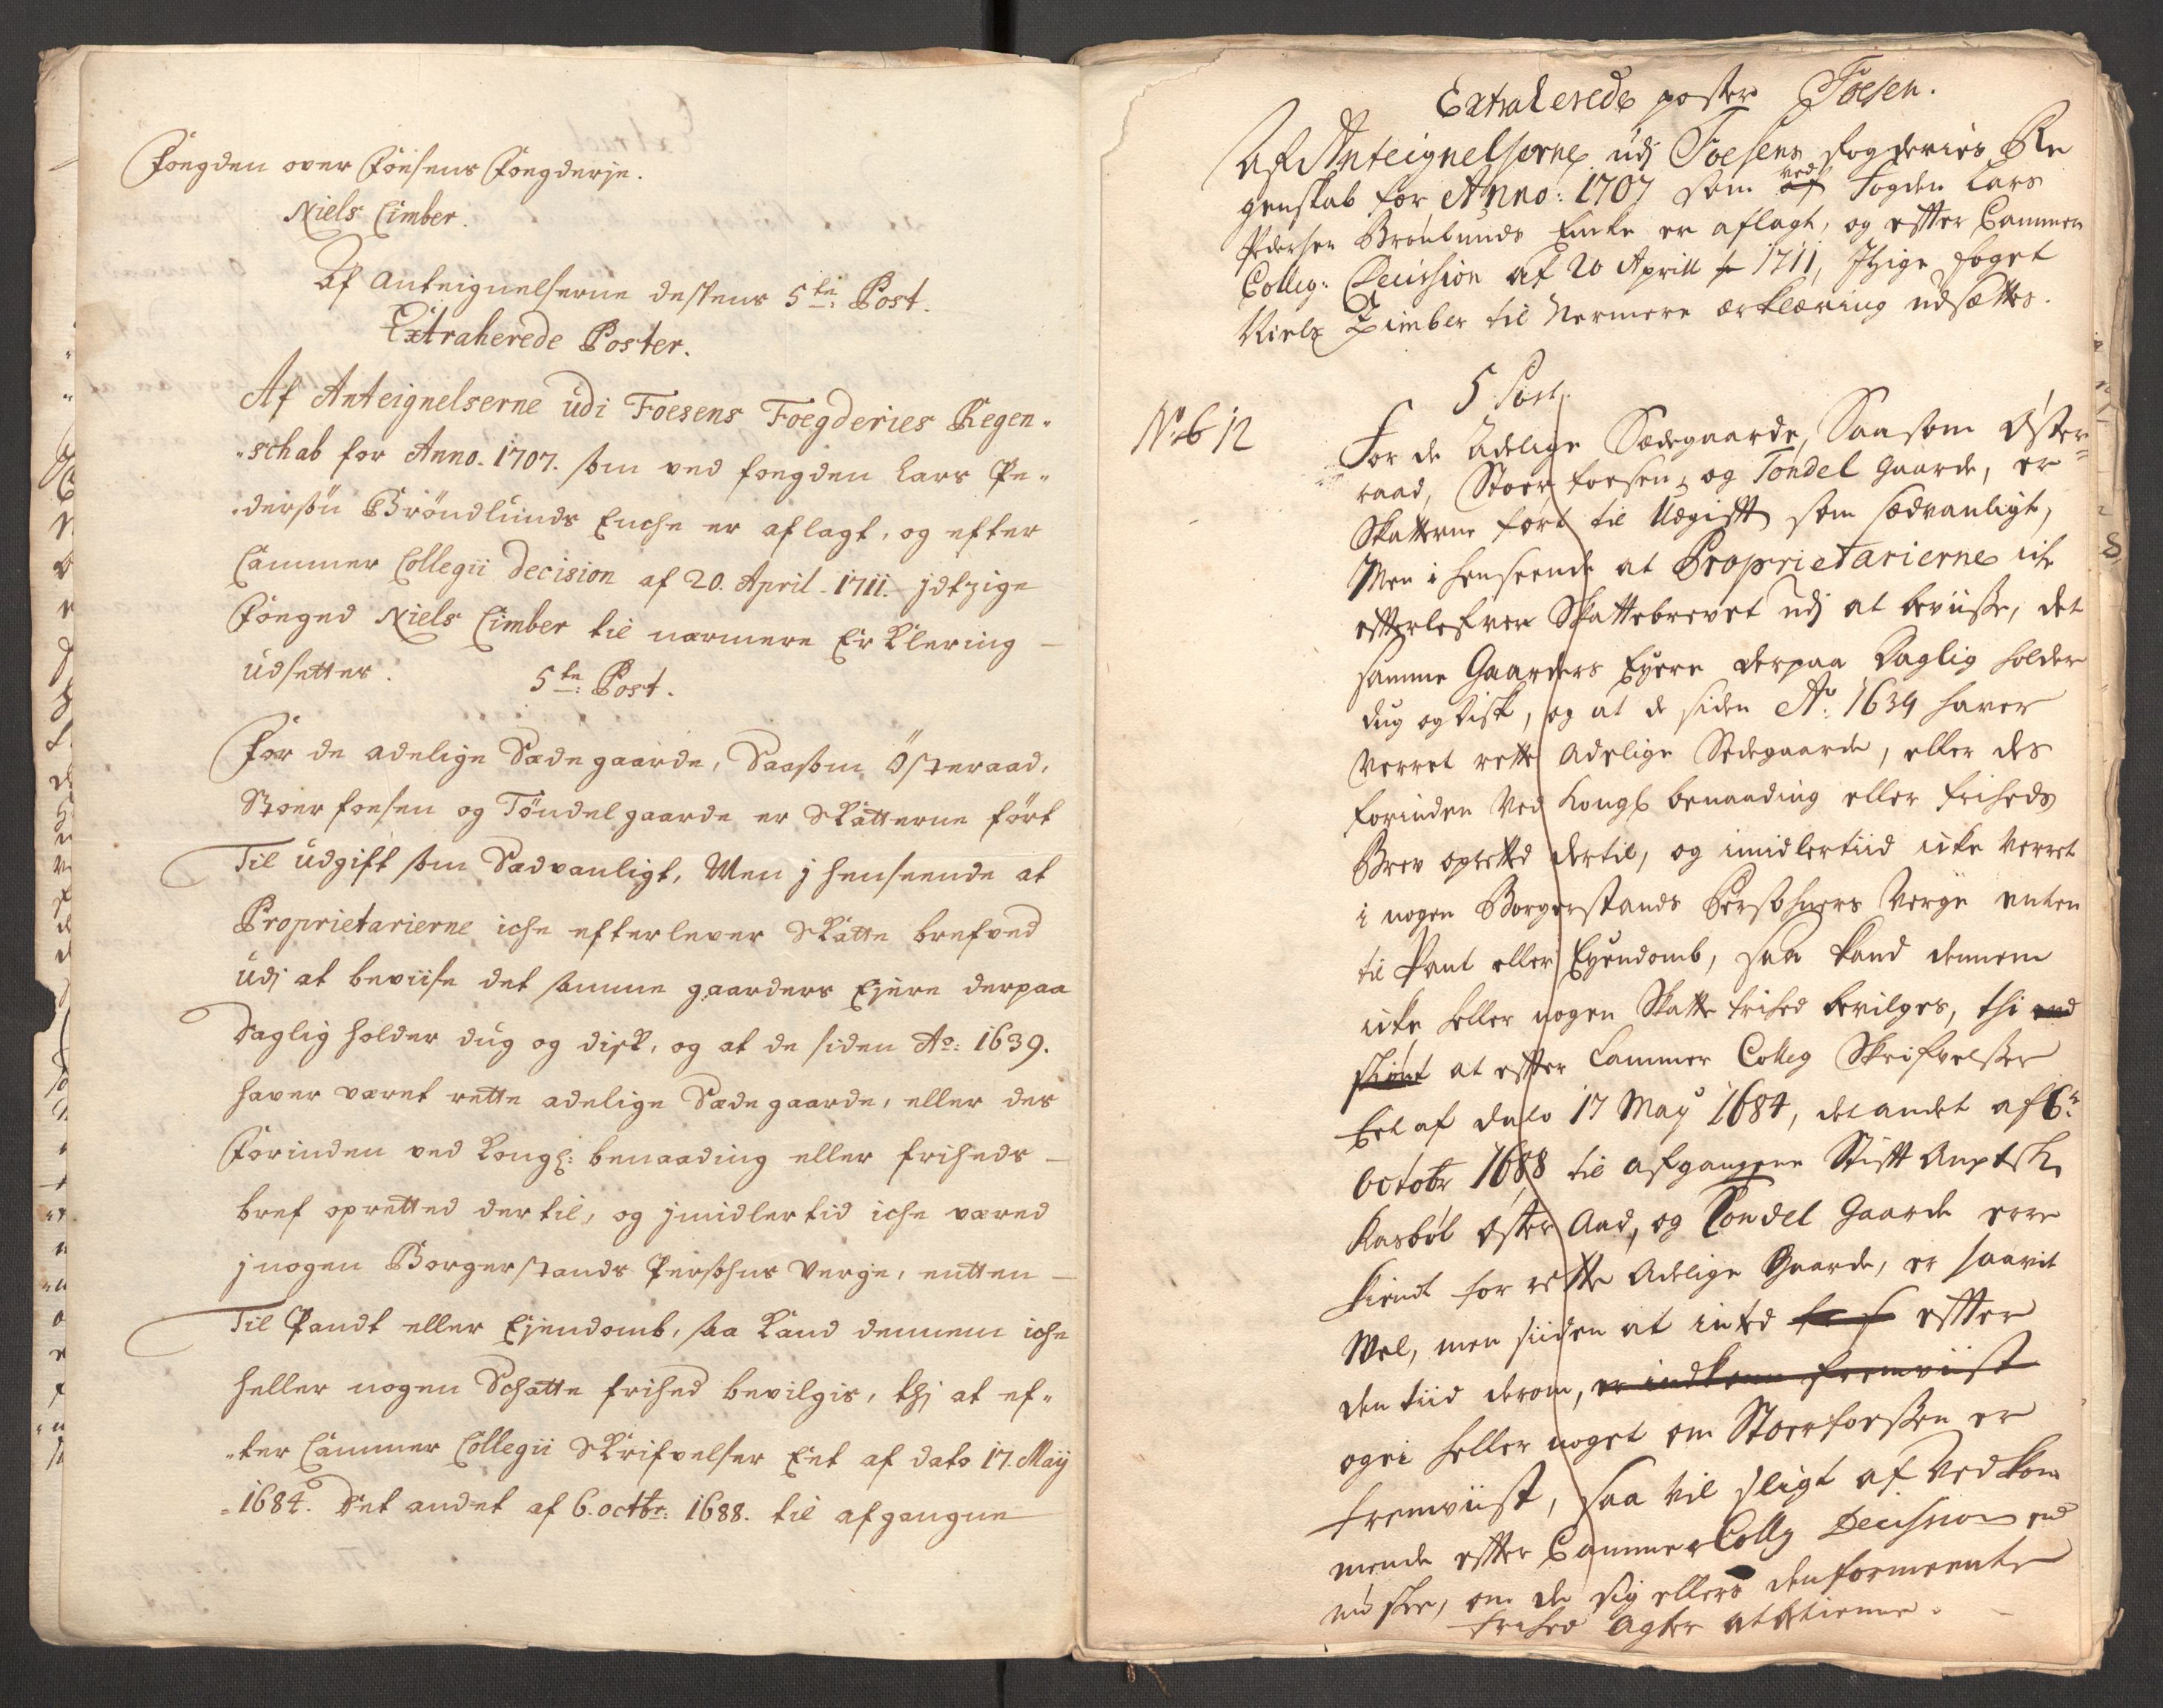 Fougden over Foesens Fougderje.
Niels Cimber.
Af Anteignelserne dessens 5te: Post.
Extraherede Poster.
Af Anteignelserne udi Foesens Foegderies Regen-
-schab for Anno. 1707. som ved fougden Lars Pe-
-dersøn Brøndlunds Enche er aflagt, og efter
Cammer Collegii Decision af 20. April. 1711. jdtzige
Fouged Niels Cimber til nærmere Erklering
udsetter.
5te: Post.
For de adelige Sædegaarde, Saasom Østeraad,
Stoerfoesen og Tøndelgaarde er Skatterne ført
Til udgift som Sædvanligt, Men j henseende at
Proprietarierne iche efterlever Skatte brefved
udj at beviise det samme gaarders Ejere derpaa
Daglig holder dug og disk, og at de siden Ao: 1639.
haver været rette adelige Sædegaarde, eller der
Forinden ved Kongl: benaading eller friheds
bref opretted dertil, og jmidlertid iche været
j nogen Borgerstands Persohns Verge, entten
Til Pandt eller Ejendomb, saa kand dennem iche
heller nogen Schatte frihed bevilgis, thj at ef-
-ter Cammer Collegii Skrifvelser Eet af dato 17. Maij
1684. Det andet af 6. octbr: 1688. til afgangne
Extraherede poster Foesen.
Af Anteignelserne udj Foesens fogderies Re
genskab for Anno: 1707 som af ved Fogden Lars
Pedersen Brønlunds Encke er aflagt, og effter Cammer
Colleg: Decission af 20 Aprill 1711, Itzige foget
Niels Zimber til Nermere ærklæring udsættes.
5 Post.
No 6 12
For de Adelige Sædegaarde, Saasom Øster-
raad, Stoer foesen, og Tøndel Gaarde, er
Skatterne ført til Udgifft som sædvanligt,
Men i henseende at Proprietarierne icke
effterlefver Skattebrevet udj at beviisse, det
samme Gaarders Eyere derpaa Daglig holder
dug og disk, og at de siden Ao: 1639 haver
Verret rette Adelige Sedegaarde, eller der
forinden Ved Kongl benaading eller friheds
Brev oprettet dertil, og imidlertiid icke verret
i nogen Borgerstands Persohners Verge enten
til Pant eller Eyendomb, saa kand dennem
icke heller nogen Skatte frihed bevilges, thi end
skiønt at effter Cammer Colleg Skrifvelser
Eet af dato 17 May 1684, det andet af 6te
Octobr 1688 til afgangne Stifft Amptsk.
Kasbøl Øster Aad, og Tøndel Gaarde erre
kiendt for rette Adelige Gaarde, er saavit
Wel, men siiden at inted effter
den tiid derom, er indkom fremviist
ogei heller noget om Stoerfoessen er
fremviist, saa vil sligt af Vedkom
mende effter Cammer Collg Decission end
nu skee, om de sig ellers den formeente
frihed agter at betienne.